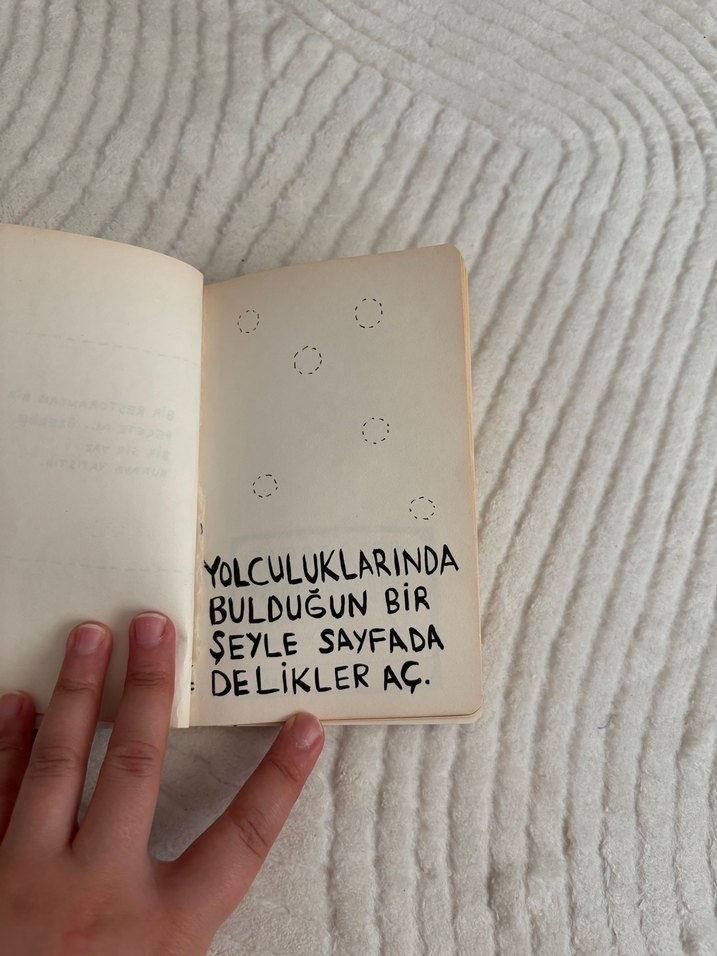 YOLCULUKLARINDA
BULDUĞUN BİR
ŞEYLE SAYFADA
DELİKLER AÇ.